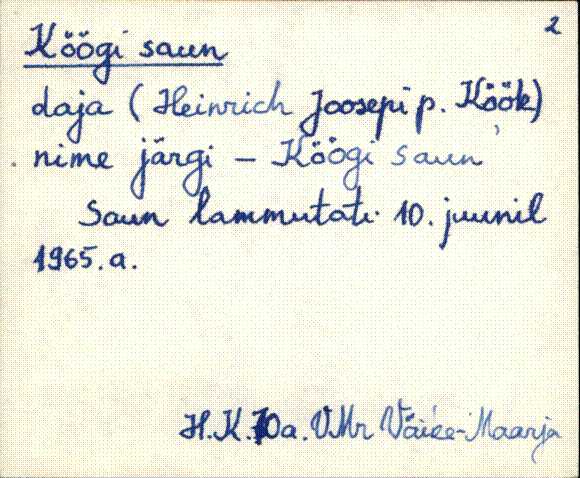 2
Köögi saun
daja (Heinrich Joosepi p. Köök)
nime järgi – Köögi saun
Saun lammutati 10. juunil
1965.a.
H.K. 70a. VMr Väike-Maarja